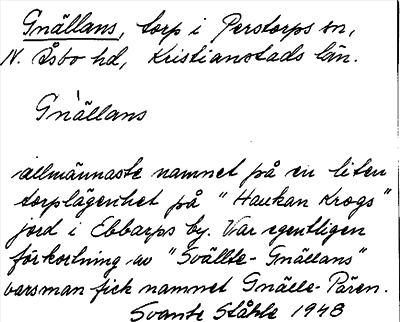 Gnällans, torp i Perstorps sn,
N. Åsbo hd, Kristianstads län.
Gnällans
allmännaste namnet på en liten
torplägenhet på "Haukan Krogs"
jord i Ebbarps by. Var egentligen
förkortning av "Svällte-Gnällans"
varsman fick namnet Gnälle-Pären.
Svante Ståhle 1948